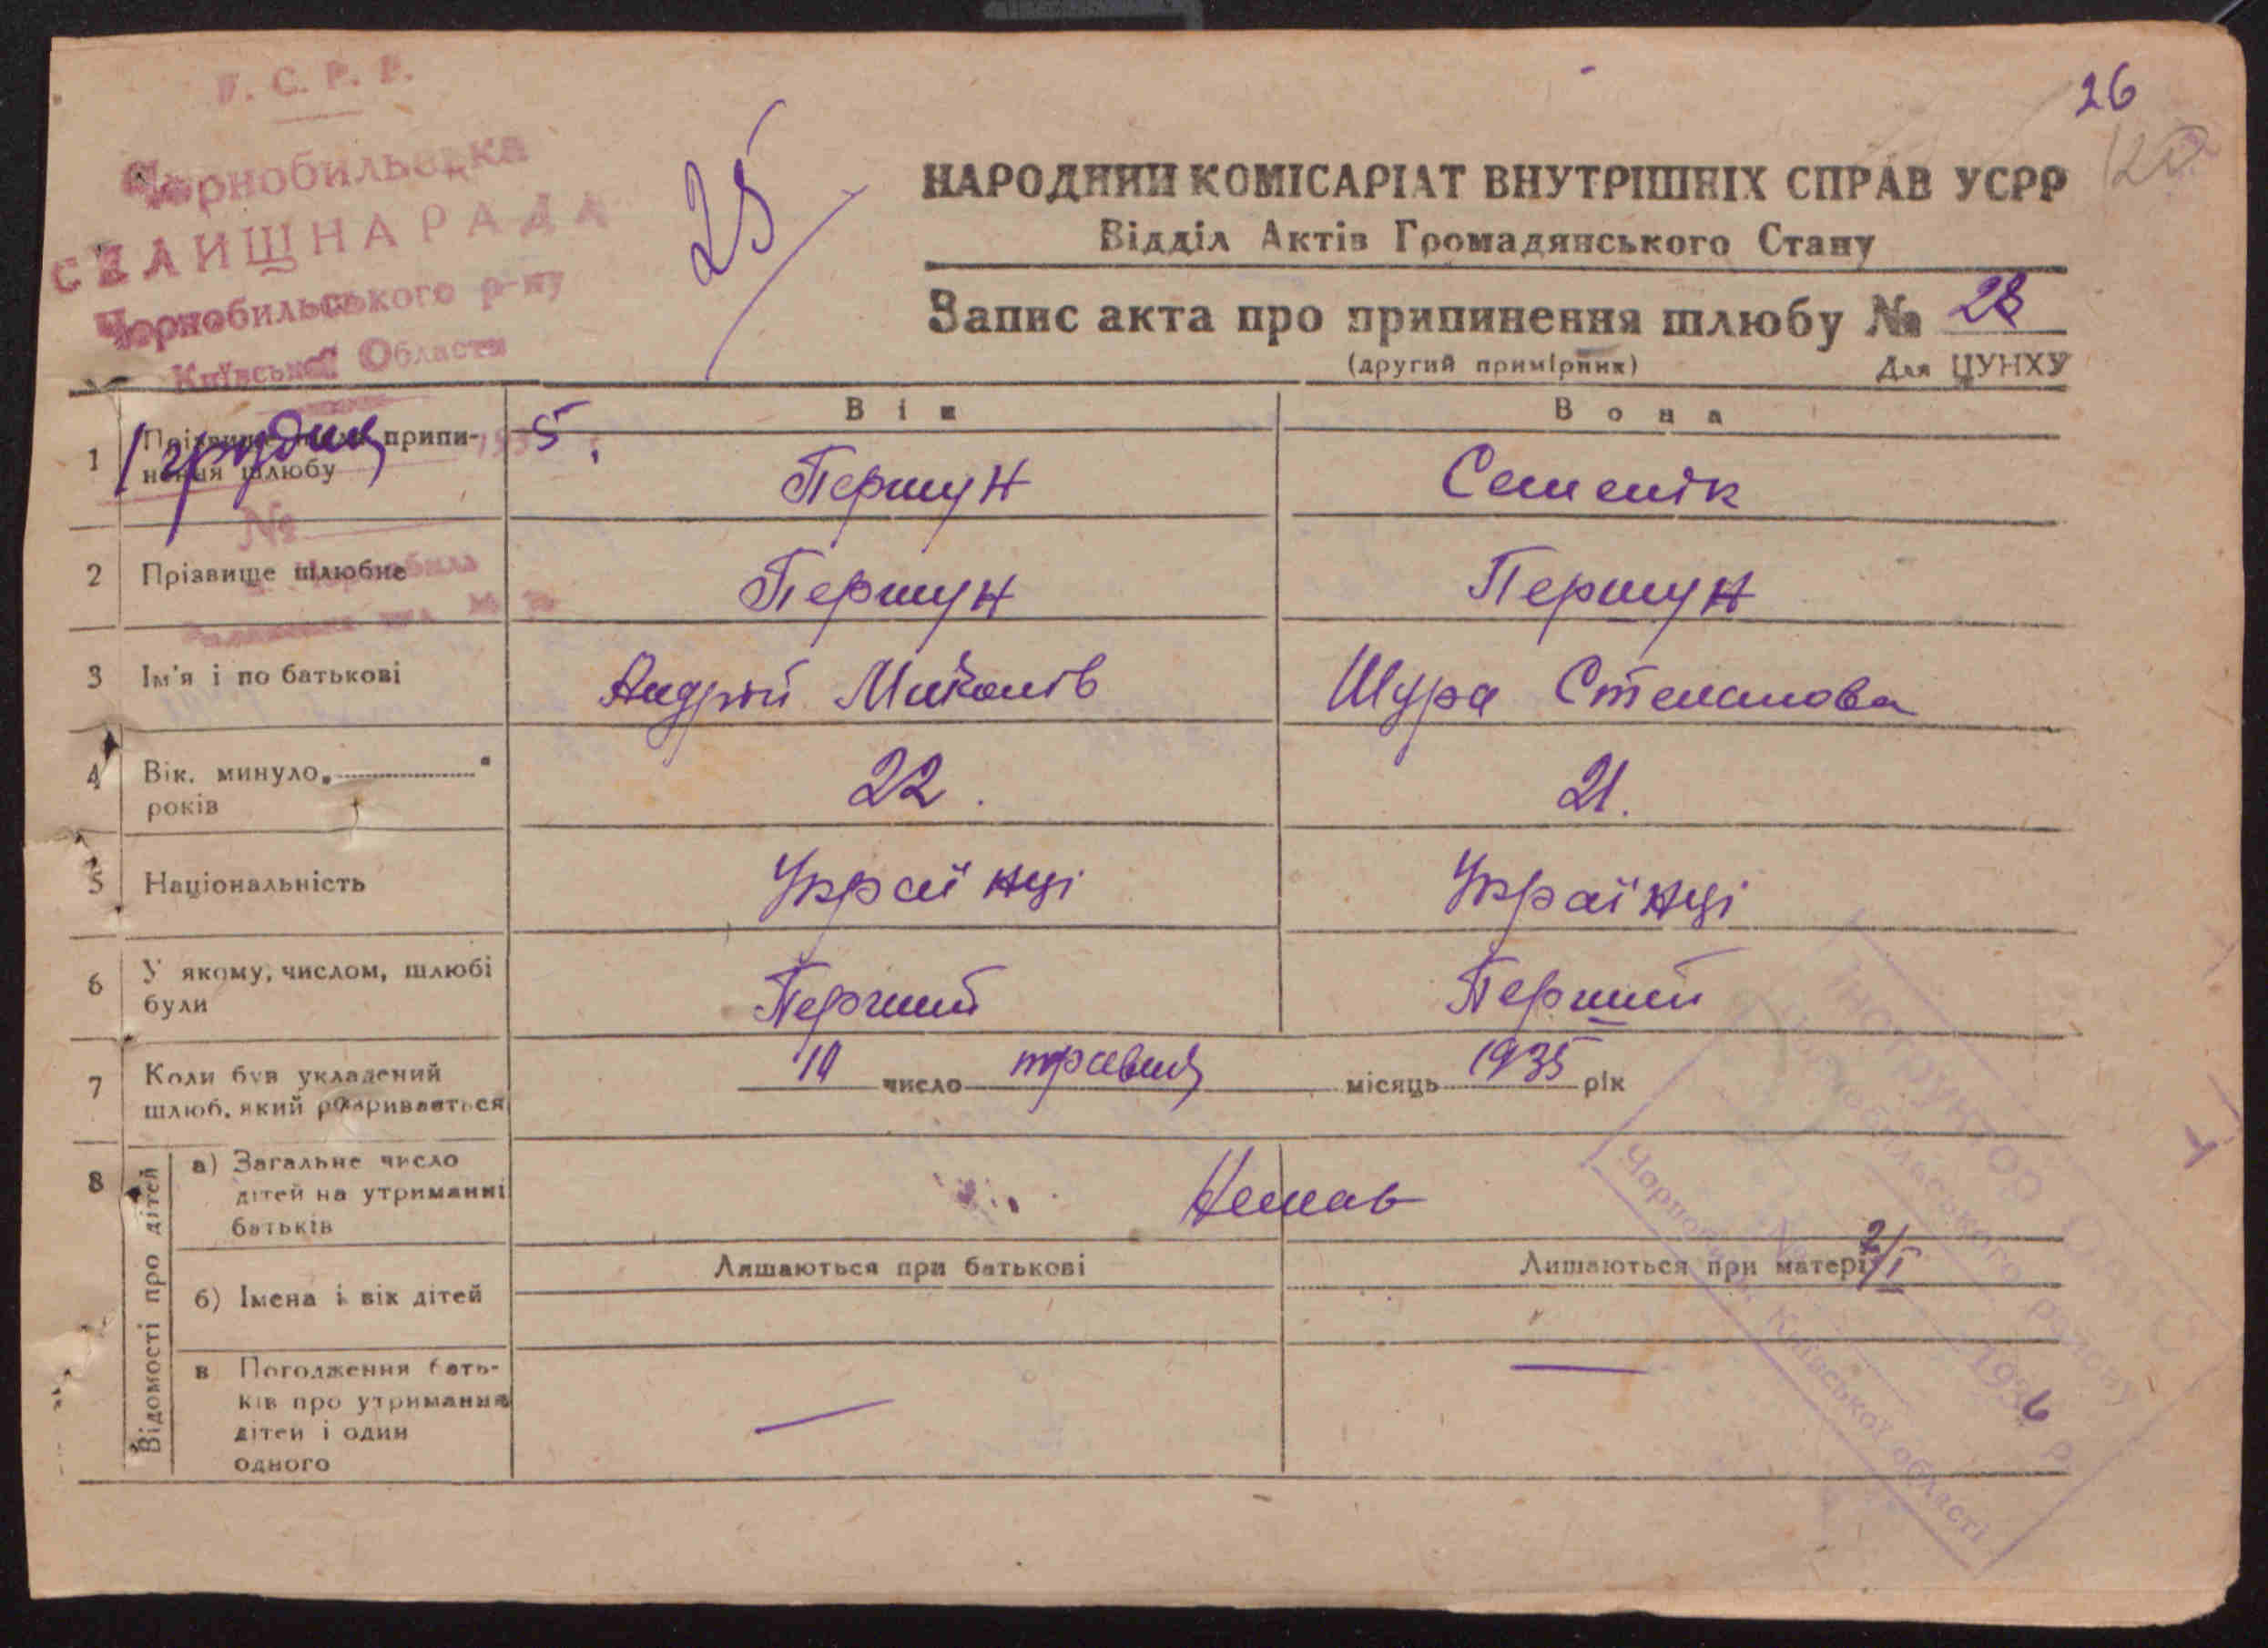 У. С. Р. Р.
26
Чорнобильська
120
СЕЛИЩНА РАДА
25
НАРОДНИЙ КОМІСАРІАТ ВНУТРІШНІХ СПРАВ УСРР
Чорнобильського р-ну
Відділ Актів Громадянського Стану
Київської Области
Запис акта про припинення шлюбу № 28
(другий примірник) Для ЦУНХУ
Він Вона
1 грудня 1935.
1 Прізвище після припинення шлюбу Першун Семенік
№
2 Прізвище шлюбне Першун Першун
м. Чорнобиль
3 Ім'я і по батькові Андрій Миколів Шура Степанова
4 Вік. минуло „ “ 22. 21.
років
5 Національність Українці Українці
6 У якому, числом, шлюбі Перший Перший
були
7 Коли був укладений 10 число травня місяць 1935 рік
шлюб, який розривається
8 Відомості про дітей
а) Загальне число
дітей на утриманні
батьків
Немає
Лишаються при батькові Лишаються при матері
2/I
б) Імена і вік дітей
в Погодження бать-
ків про утримання
дітей і один
одного
— —
Інструктор
Чорнобильського району
№
1936 р.
Чорнобиль, Київської області